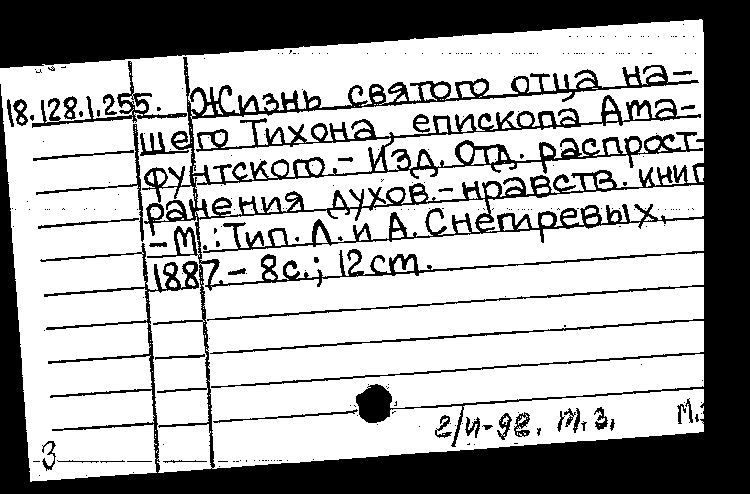 18.128.1.255. Жизнь святого отца на-
шего Тихона, епископа Ама-
фунтского.- Изд. Отд. распрост-
ранения духов.-нравств. книг
-М.: Тип. Л. и А. Снегиревых,
1887.- 8с.; 12см.
2/VI-92. М.З. М.З
З